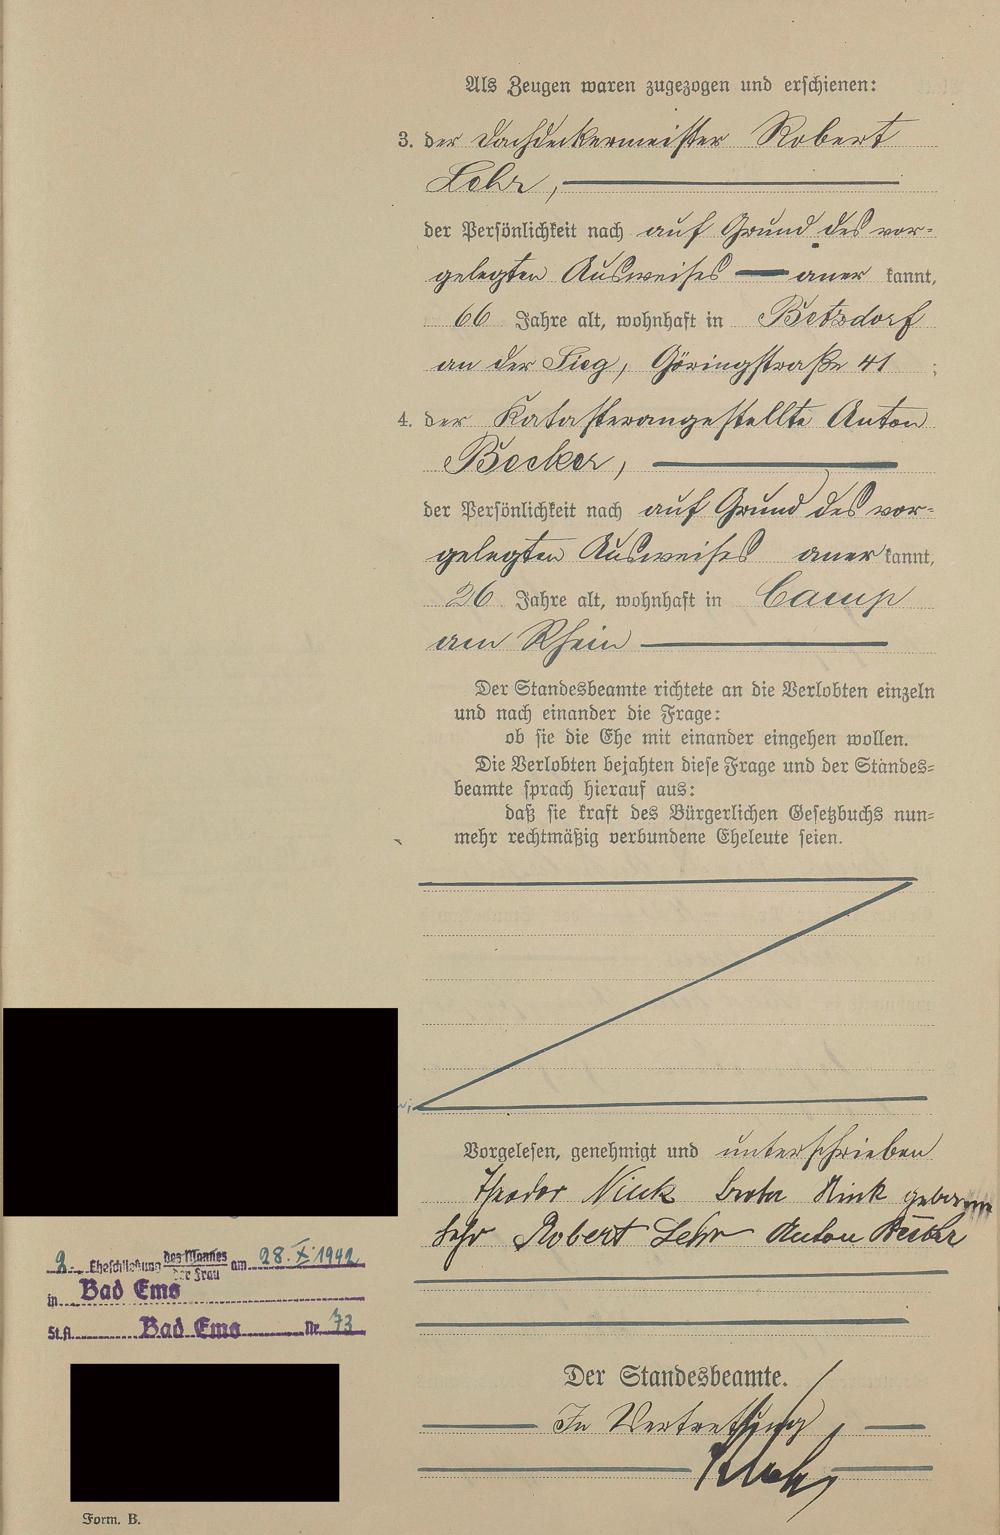 Als Zeugen waren zugezogen und erschienen:
3. der Dachdeckermeister Robert
Lehr,
der Persönlichkeit nach auf Grund des vor=
gelegten Ausweises — aner kannt,
66 Jahre alt, wohnhaft in Betzdorf
an der Sieg, Göringstraße 41 ;
4. der Katasterangestellte Anton
Becker,
der Persönlichkeit nach auf Grund des vor=
gelegten Ausweises aner kannt,
26 Jahre alt, wohnhaft in Camp
am Rhein
Der Standesbeamte richtete an die Verlobten einzeln
und nach einander die Frage:
ob sie die Ehe mit einander eingehen wollen.
Die Verlobten bejahten diese Frage und der Standes=
beamte sprach hierauf aus:
daß sie kraft des Bürgerlichen Gesetzbuchs nun=
mehr rechtmäßig verbundene Eheleute seien.
Vorgelesen, genehmigt und unterschrieben
Theodor Nink Nink geborene
Lehr Robert Lehr Anton Becker
2. Eheschließung des Mannes
der Frau am 28. X. 1942
in Bad Ems
St.A. Bad Ems Nr. 73
Der Standesbeamte.
In Vertretung
Form. B.